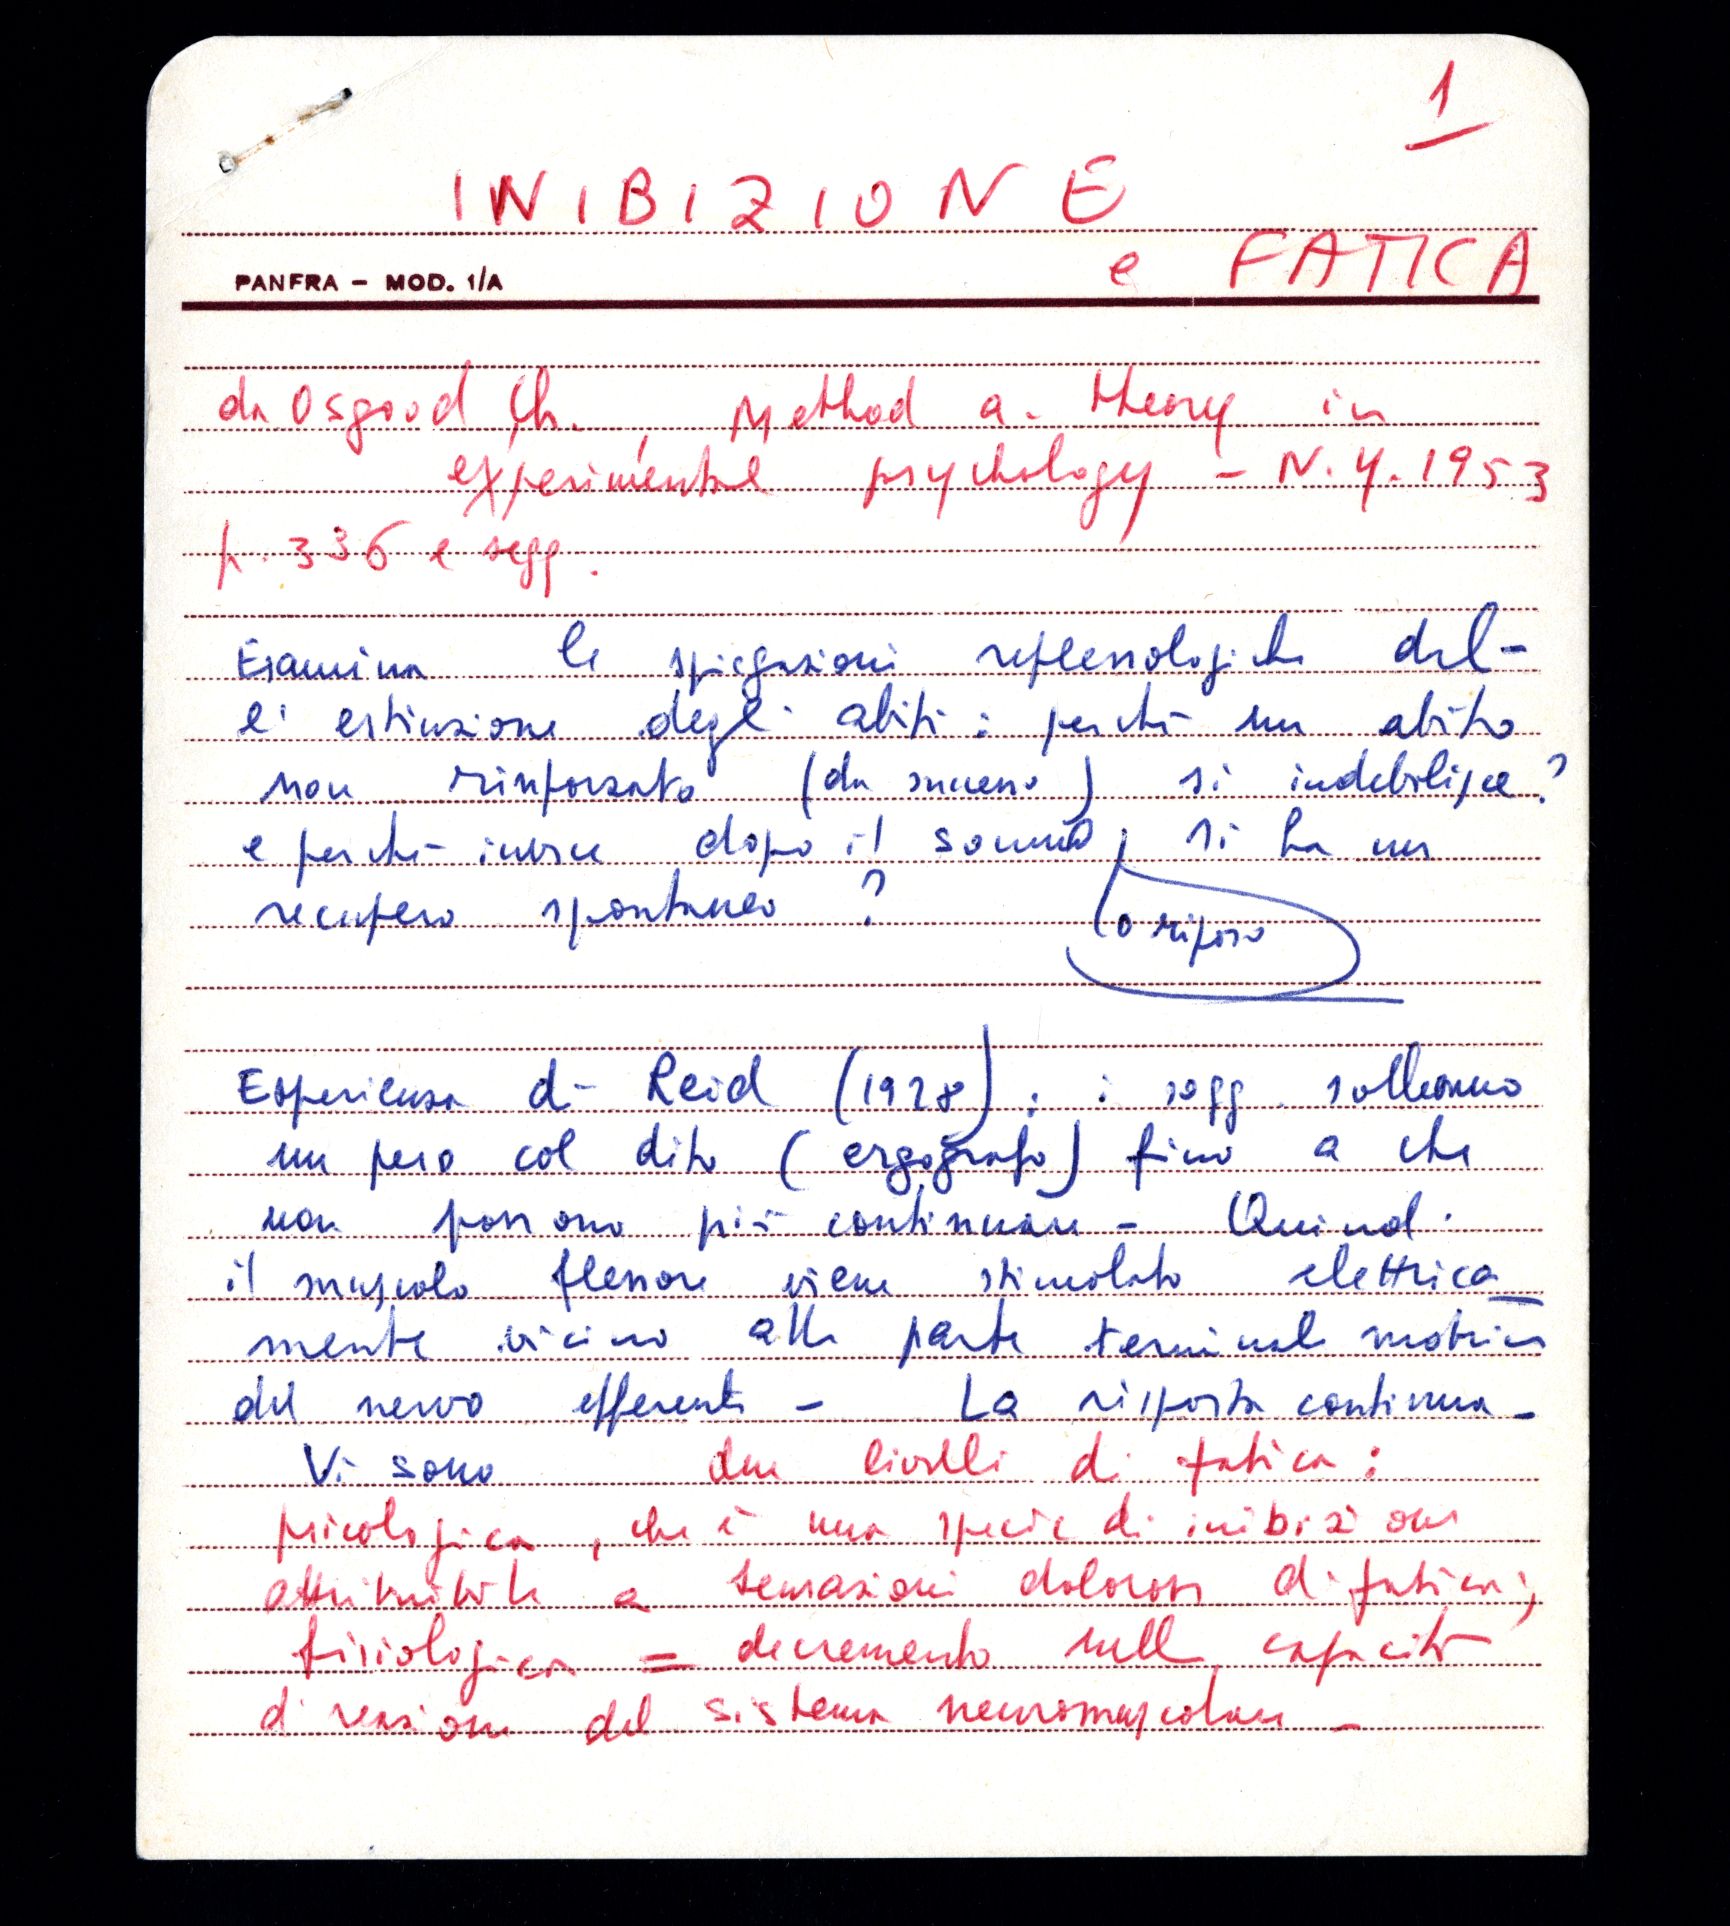 1
INIBIZIONE
e FATICA
PANFRA – MOD. 1/A
da Osgood Ch. Method a. theory in
experimental psychology – N.Y. 1953
p. 336 e segg.
Esamina le spiegazioni reflessologiche del-
l'estinzione degli abiti: perchè un abito
non rinforzato (da successo) si indebolisce?
e perchè invece dopo il sonno, si ha un
recupero spontaneo?
(o riposo
Esperienza di Reid (1928): i sogg. sollevano
un peso col dito (ergografo) fino a che
non possono più continuare – Quindi
il muscolo flessore viene stimolato elettrica
mente vicino alla parte terminale motrice
del nervo efferente – La risposta continua –
Vi sono due livelli di fatica:
psicologica, che è una specie di inibizione
attribuibile a sensazioni dolorose di fatica;
fisiologica = decremento nella capacità
di reazione del sistema neuromuscolare –